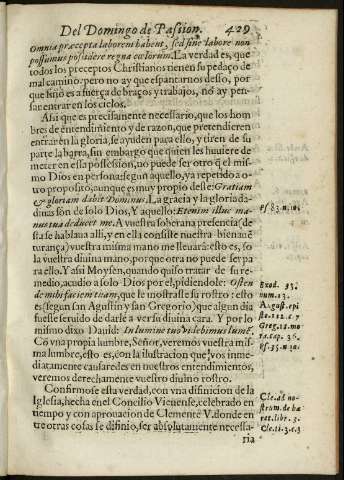 Del Domingo de Passion. 429
Omnia præcepta laborem habent, sed sine labore non
possumus possidere regna cælorum. La verdad es, que
todos los preceptos Christianos tienen su pedaço de
mal camino: pero no ay que espantarnos desso, por
que sino es a fuerça de braços y trabajos, no ay pen-
sar entrar en los cielos.
Assi que es precisamente necessario, que los hom
bres de entendimiento y de razon, que pretendieren
entrar en la gloria, se ayuden para ello, y tiren de su
parte la barra, sin embargo que quien les huuiere de
meter en essa possession, no puede ser otro q̃ el mis-
mo Dios en persona: segun aquello, ya repetido a o-
tro proposito, aunque es muy propio deste: Gratiam
& gloriam dabit Dominus. La gracia y la gloria da-
diuas son de solo Dios, Y aquello: Etenim illuc ma-
nus tua deducet me. A vuestra soberana presencia (de
sta se hablaua alli, y en ella consiste nuestra bienauẽ
turança) vuestra misma mano me lleuará: esto es, so
la vuestra diuina mano, porque otra no puede ser pa
ra ello. Y assi Moysen, quando quiso tratar de su re-
medio, acudio a solo Dios por el, pidiendole: Osten
de mihi faciem tuam, que le mostrasse su rostro: esto
es (segun san Agustin y san Gregorio) que algun dia
fuesse seruido de darle a ver su diuina cara. Y por lo
mismo dixo Dauid: In lumine tuo videbimus lumẽ.
Cõ vna propia lumbre, Señor, veremos vuestra mis-
ma lumbre, esto es, con la ilustracion que vos inme-
diatamente causaredes en nuestros entendimientos,
veremos derechamente vuestro diuino rostro.
Confirmose esta verdad, con vna difinicion de la
Iglesia, hecha en el Concilio Vienense, celebrado en
tiempo y con aprouacion de Clemente V. donde en
tre otras cosas se difinio, ser absolutamente necessa-
ria
Ps. 83. n. 12.
Exod. 33.
num. 13.
A. gost. epi
ste. 112. c. 7
Greg. 18. mo
ra. cap. 36.
Ps. 35. n. 10.
Cle. ad no-
strum. de hæ
ret. libr. 5.
Cle. ti. 3. c. 3